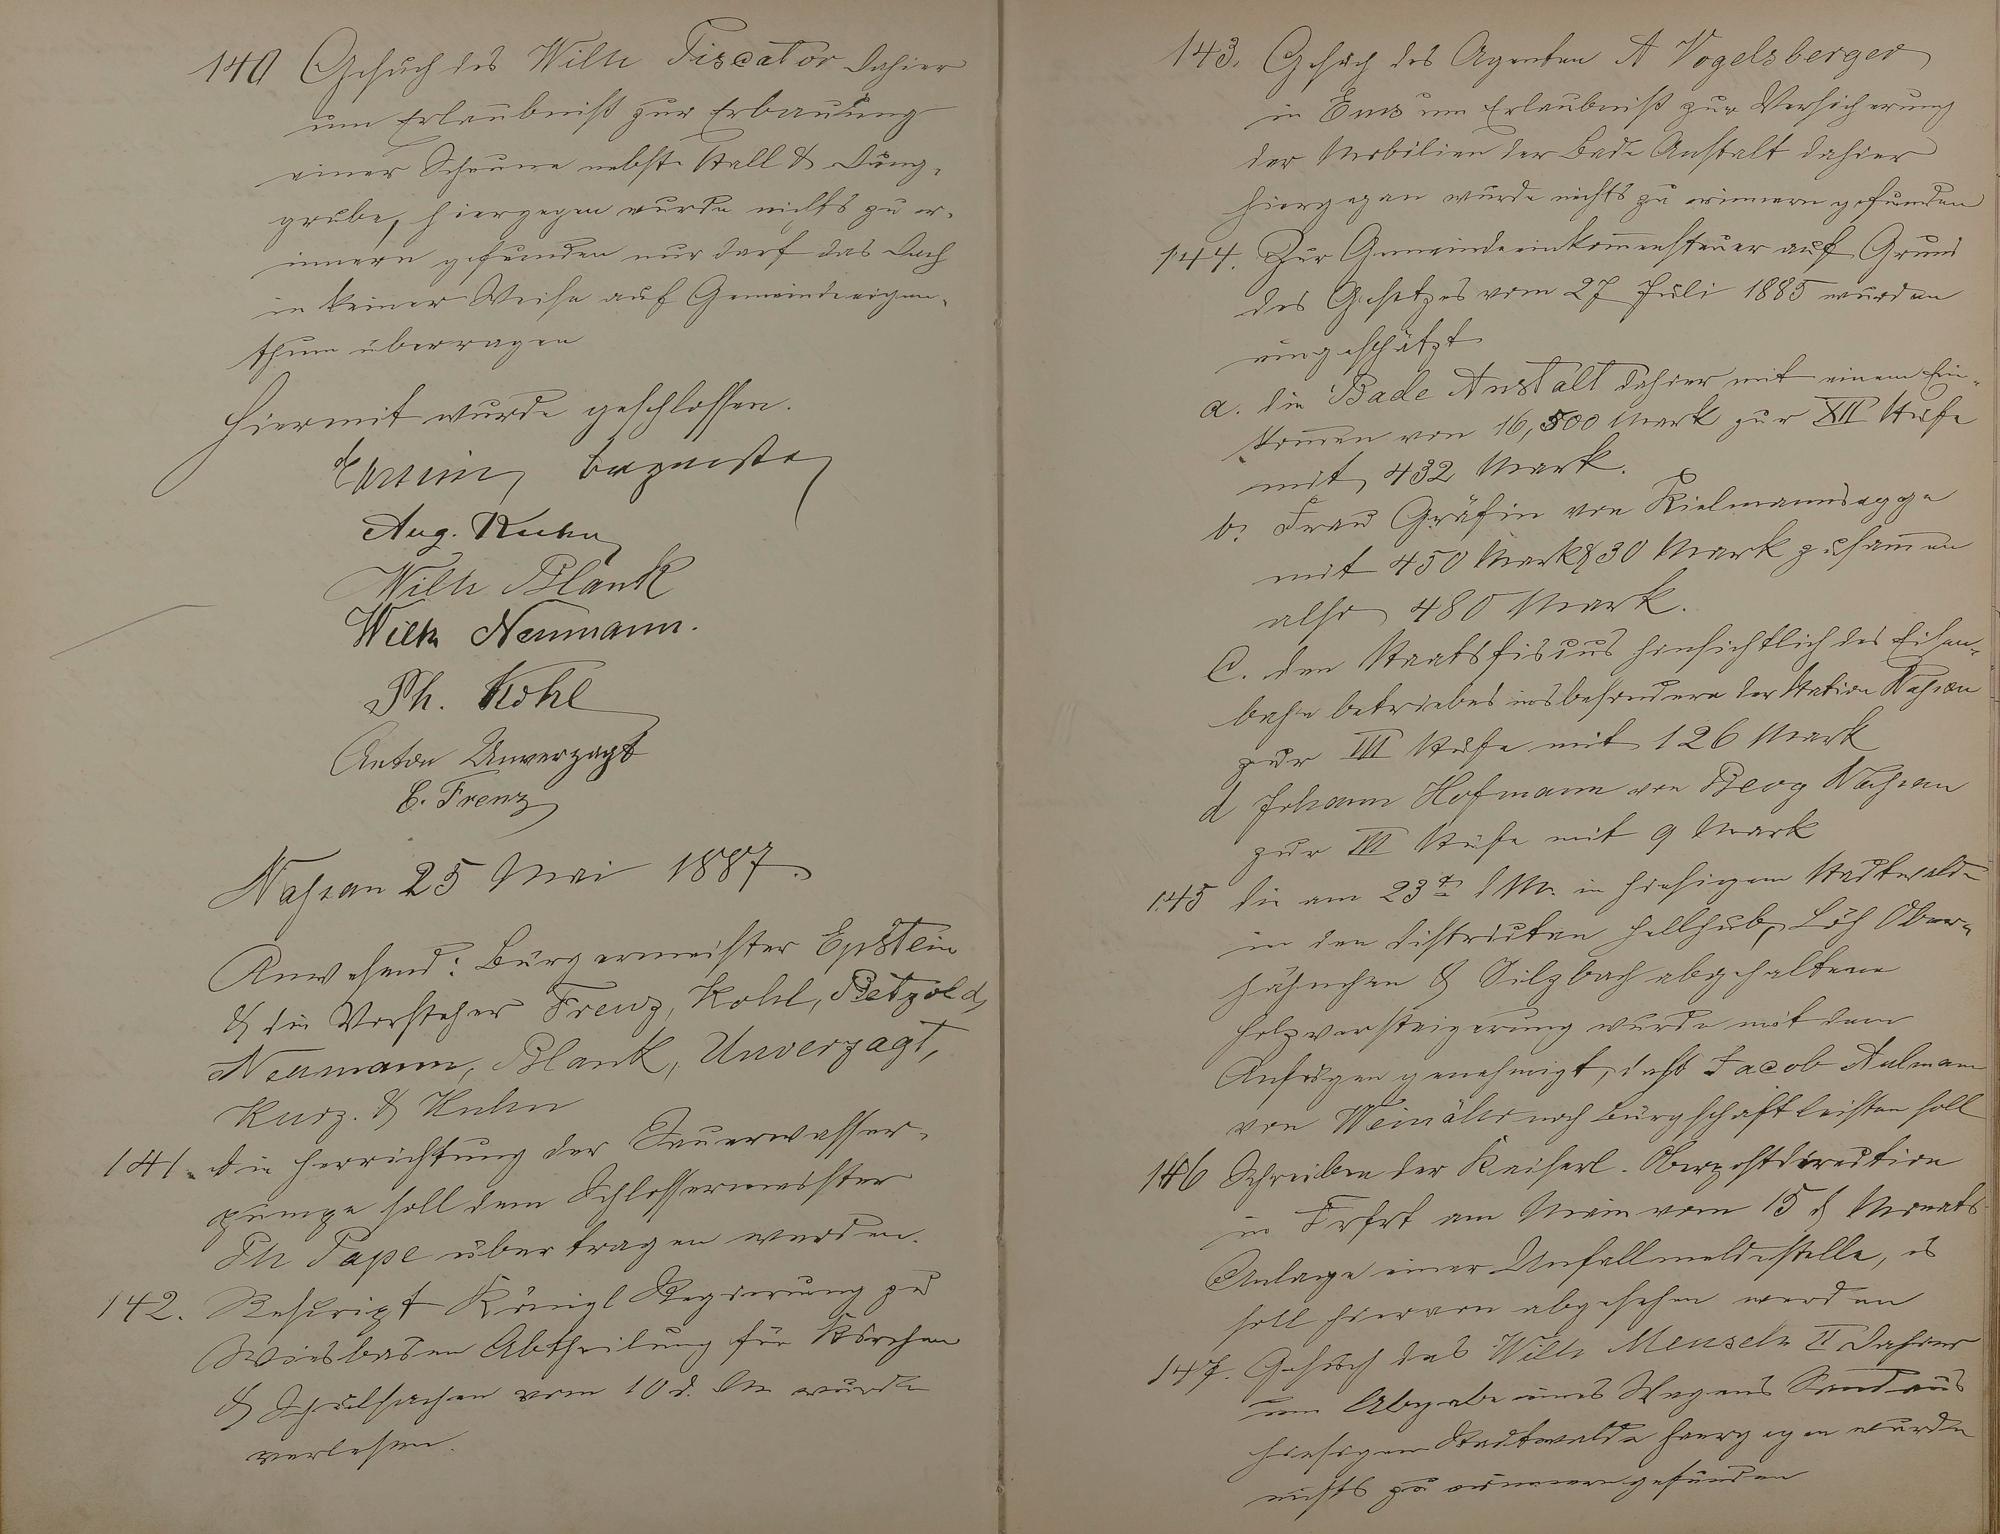 140 Gesuch des Wilh Piscator dahier
um Erlaubniß zur Erbauung
einer Scheune nebst Stall & Dung-
grube, hiergegen wurde nichts zu er-
innern gefunden nur darf das Dach
in keiner Weise auf Gemeindeeigen-
thum überragen
Hiermit wurde geschlossen.
Aug. Kuhn
Wilh Blank
Wilh Neumann.
Ph. Kohl
Anton Unverzagt
C. Frenz
Nassau 25 Mai 1887.
Anwesend: Bürgermeister Epstein
& die Vorsteher Frenz, Kohl, Petzold,
Neumann, Blank, Unverzagt,
Kurz. & Kuhn
141. Die Herrichtung der Sauerwasser-
pumpe soll dem Schlossermeister
Ph Pape übertragen werden.
142. Rescript Königl Regierung zu
Wiesbaden Abtheilung für Kirchen
& Schulsachen vom 10 d. Ms wurde
verlesen.
143. Gesuch des Agenten A Vogelsberger
in Ems um Erlaubniß zur Versicherung
der Mobilien der Bade Anstalt dahier
hiergegen wurde nichts zu erinnern gefunden
144. Zur Gemeindeeinkommensteuer auf Grund
des Gesetzes vom 27 Juli 1885 wurden
eingeschätzt
a. die Bade Anstalt dahier mit einem Ein-
kommen von 16,500 Mark zur XII Stufe
mit 432 Mark.
b. Frau Gräfin von Kielmannsegge
mit 450 Mark & 30 Mark zusammen
also 480 Mark.
C. den Staatsfiscus hinsichtlich des Eisen-
bahn betriebes insbesondere der Station Nassau
zur III Stufe mit 126 Mark
d Johann Hofmann von Berg Nassau
zur III Stufe mit 9 Mark
145 die am 23t d Ms. in hiesigem Stadtwalde
in den Distrikten Löh Ober-
hähnchen & Silzbach abgehaltene
Holzversteigerung wurde mit dem
Anfügen genehmigt, daß Jacob Aulmann
von Weinähr noch Bürgschaft leisten soll
146 Schreiben der Kaiserl. Oberpostdirection
in Frfrt am Main vom 15 d Monats
Anlage einer Unfallmeldestelle, es
soll hiervon abgesehen werden
147. Gesuch des Wilh Mensch II dahier
um Abgabe eines Wagens Sand aus
hiesigem Stadtwalde hiergegen wurde
nichts zu erinnern gefunden